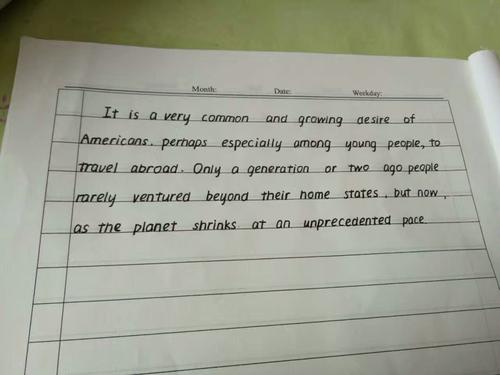 Month: Date: Weekday:
It is a very common and growing desire of
Americans. perhaps especially among young people, to
travel abroad. Only a generation or two ago people
rarely ventured beyond their home states, but now,
as the planet shrinks at an unprecedented pace.